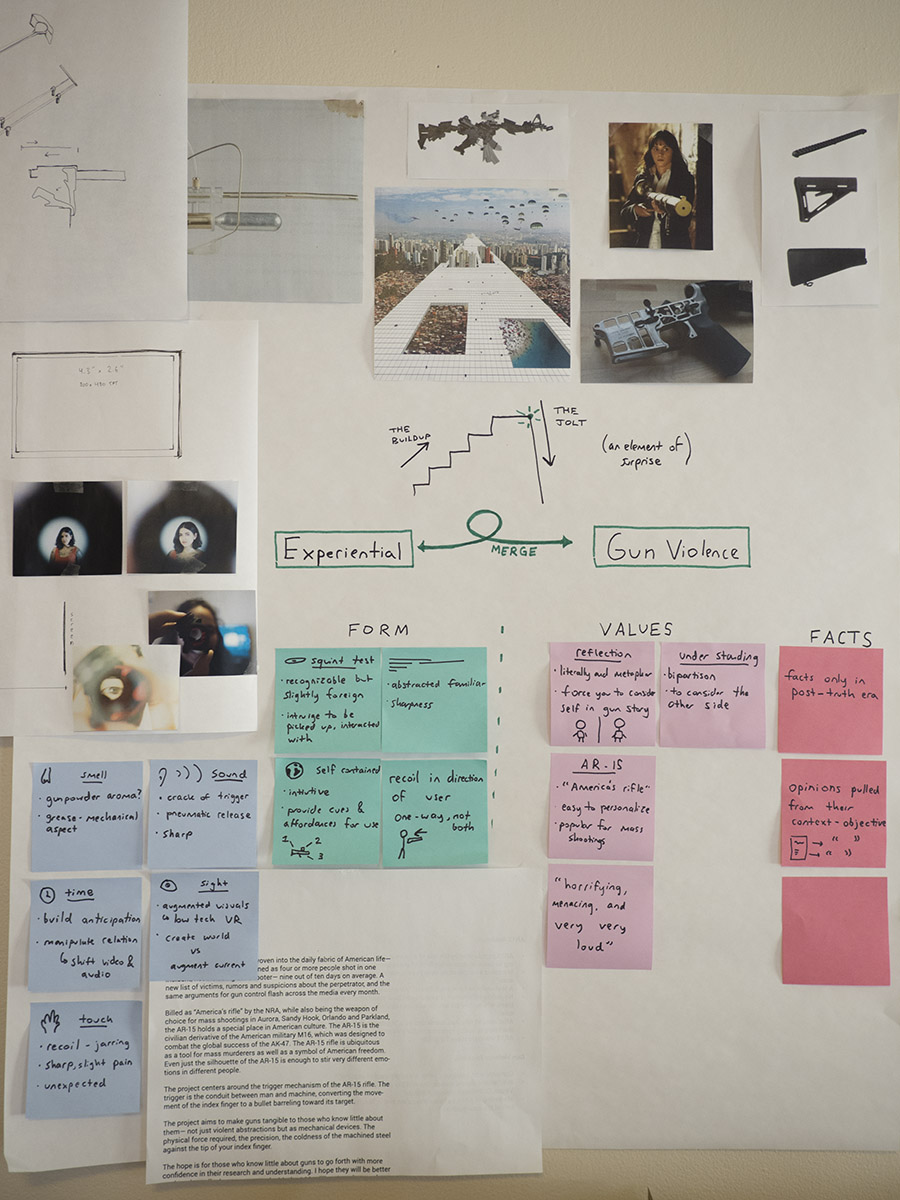 4.3" x 2.6"
THE
BUILDUP
THE
JOLT
(an element of
surprise)
Experiential
MERGE
Gun Violence
FORM
VALUES
FACTS
squint test
• recognizable but
slightly foreign
• intruige to be
picked up, interacted
with
• abstracted familiar
• sharpness
self contained
• intuitive
• provide cues &
affordances for use
1
2
3
recoil in direction
of user
one-way, not
both
reflection
• literally and metaphor
• force you to consider
self in gun story
understanding
• bipartison
• to consider the
other side
AR-15
• "America's rifle"
• easy to personalize
• popular for mass
shootings
"horrifying,
menacing, and
very very
loud"
facts only in
post-truth era
Opinions pulled
from their
context-objective
smell
• gunpowder aroma?
• grease-mechanical
aspect
sound
• crack of trigger
• pneumatic release
• sharp
time
• build anticipation
• manipulate relation
shift video &
audio
sight
• augmented visuals
low tech VR
• create world
vs
augment current
touch
• recoil - jarring
• sharp, slight pain
• unexpected
woven into the daily fabric of American life—
ned as four or more people shot in one
ooter— nine out of ten days on average. A
new list of victims, rumors and suspicions about the perpetrator, and the
same arguments for gun control flash across the media every month.
Billed as "America's rifle" by the NRA, while also being the weapon of
choice for mass shootings in Aurora, Sandy Hook, Orlando and Parkland,
the AR-15 holds a special place in American culture. The AR-15 is the
civilian derivative of the American military M16, which was designed to
combat the global success of the AK-47. The AR-15 rifle is ubiquitous
as a tool for mass murderers as well as a symbol of American freedom.
Even just the silhouette of the AR-15 is enough to stir very different emo-
tions in different people.
The project centers around the trigger mechanism of the AR-15 rifle. The
trigger is the conduit between man and machine, converting the move-
ment of the index finger to a bullet barreling toward its target.
The project aims to make guns tangible to those who know little about
them— not just violent abstractions but as mechanical devices. The
physical force required, the precision, the coldness of the machined steel
against the tip of your index finger.
The hope is for those who know little about guns to go forth with more
confidence in their research and understanding. I hope they will be better